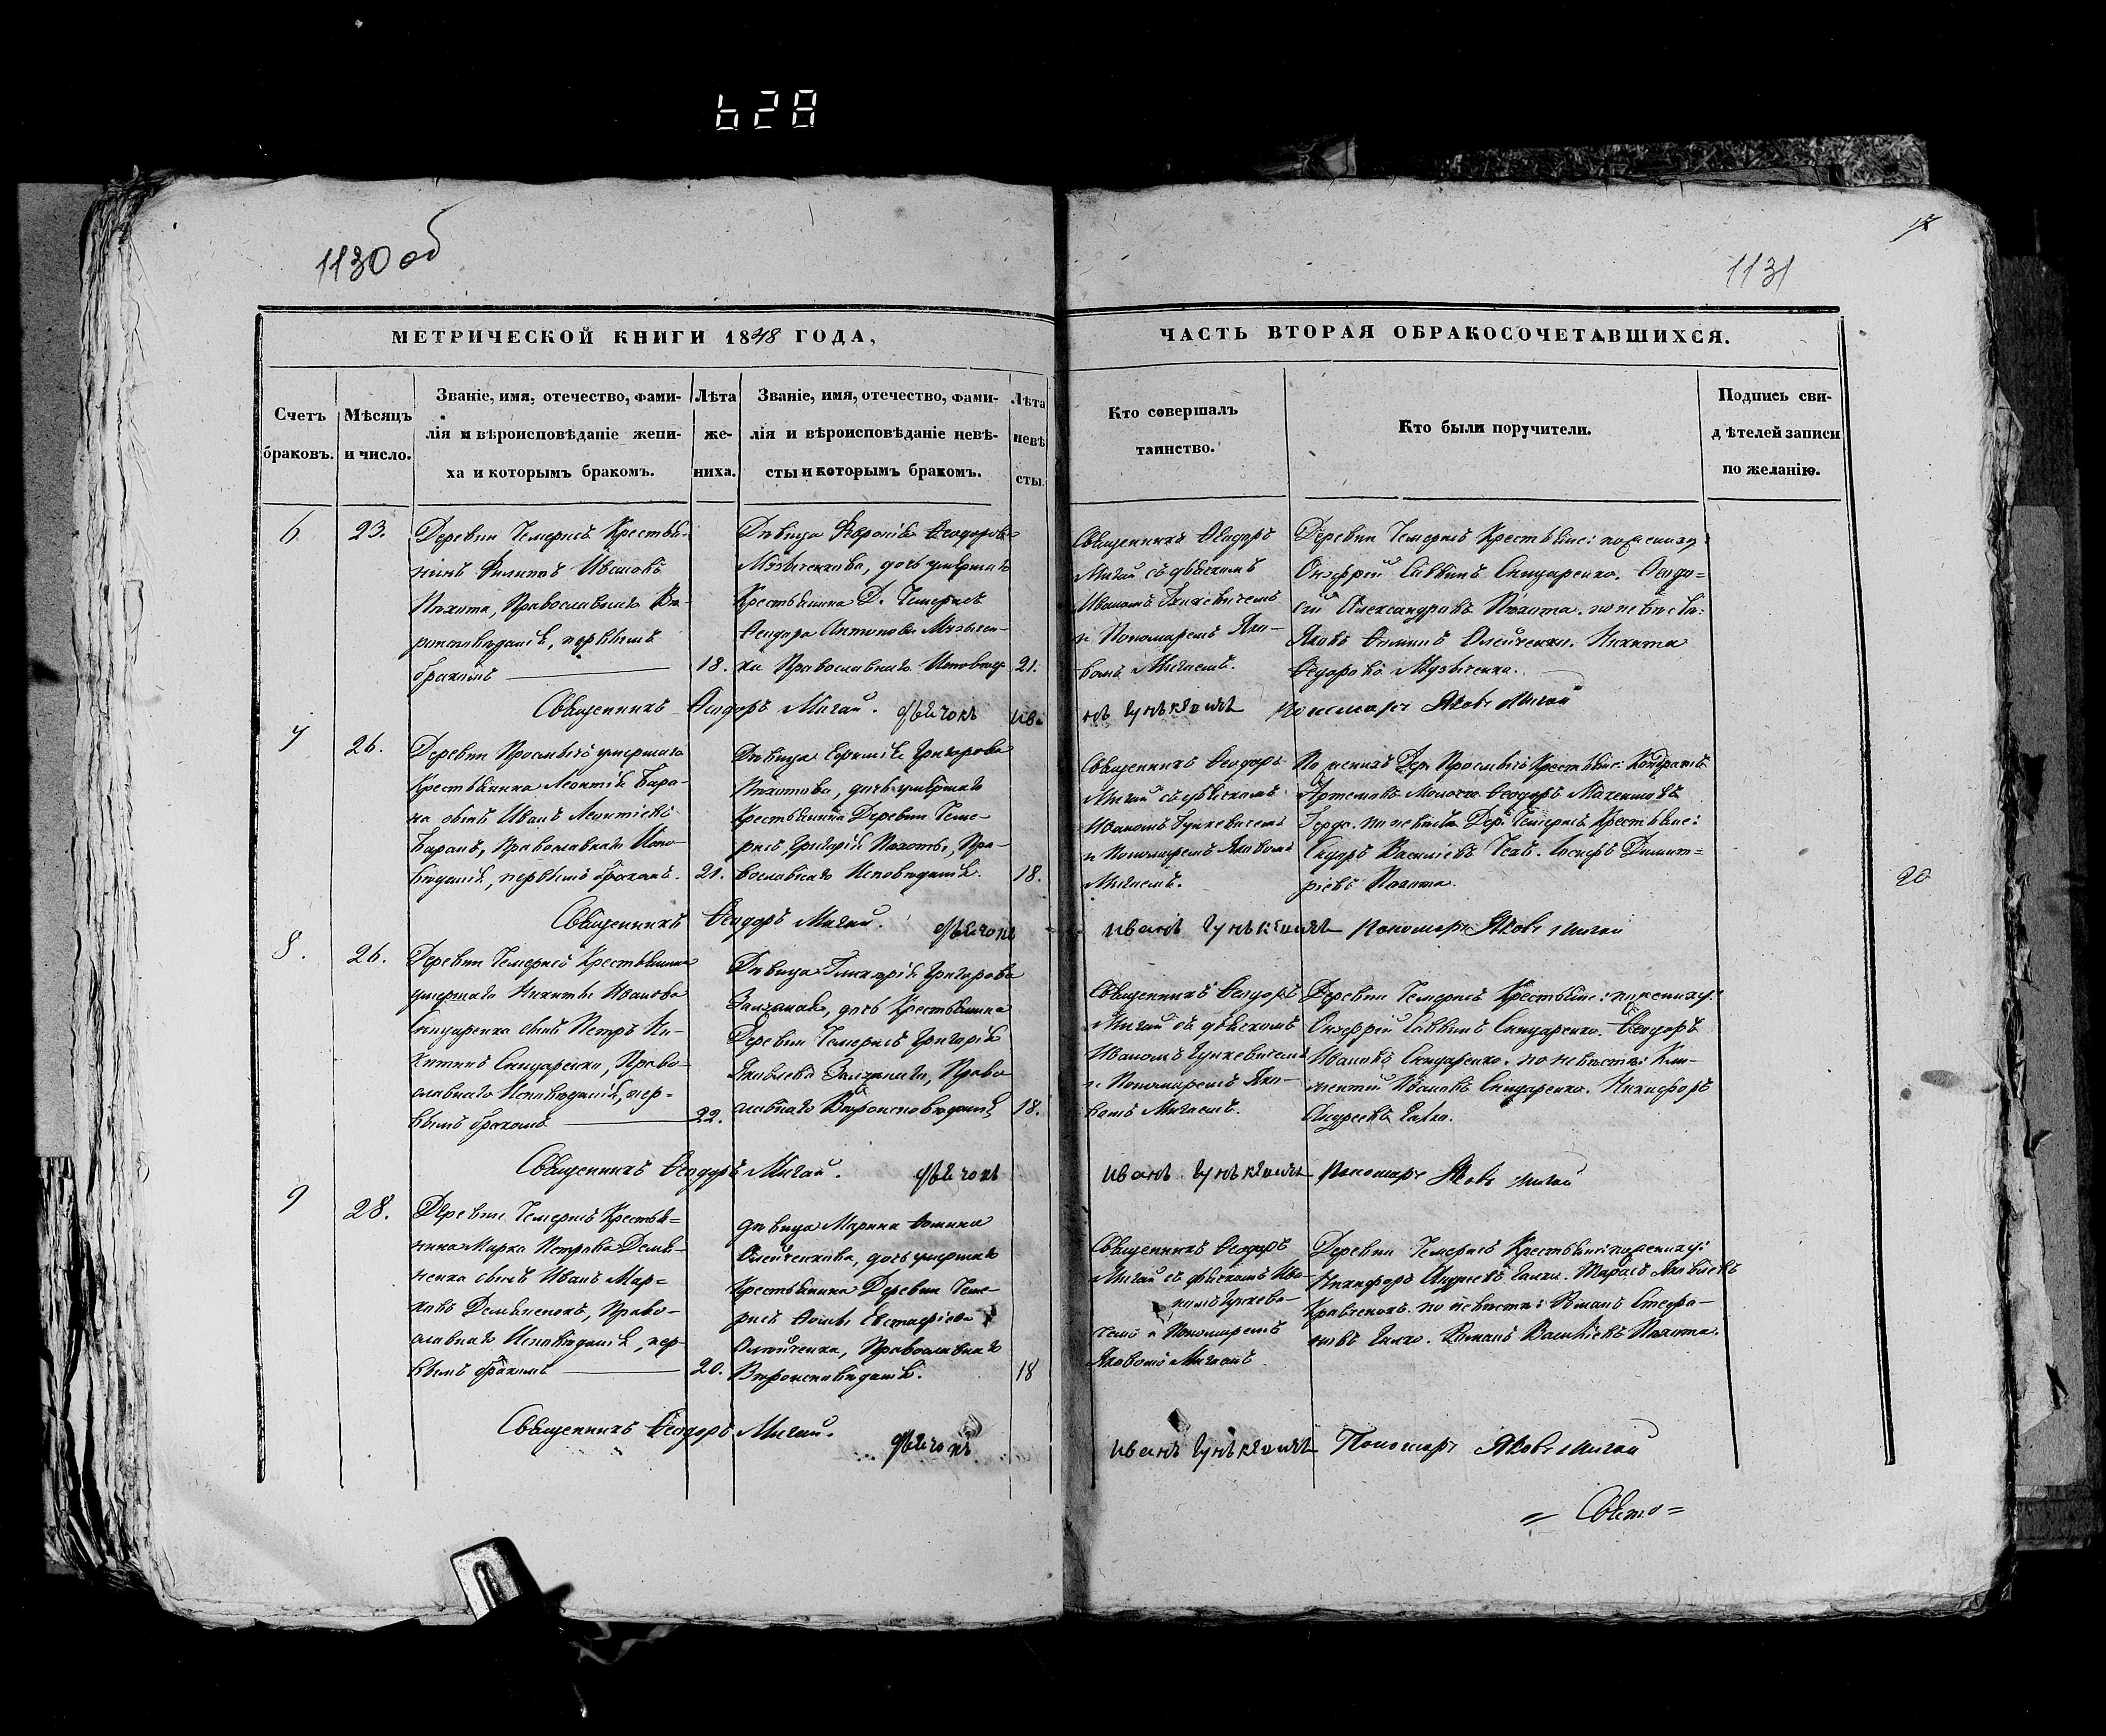 628
1130 об
1131
МЕТРИЧЕСКОЙ КНИГИ 1848 ГОДА,
ЧАСТЬ ВТОРАЯ ОБРАКОСОЧЕТАВШИХСЯ.
Счетъ
браковъ.
Мѣсяцъ
и число.
Званіе, имя, отечество, фами-
лія и вѣроисповѣданіе жени-
ха и которымъ бракомъ.
Лѣта
же-
ниха.
Званіе, имя, отечество, фами-
лія и вѣроисповѣданіе невѣ-
сты и которымъ бракомъ.
Лѣта
невѣ
сты.
Кто совершалъ
таинство.
Кто были поручители.
Подпись сви-
дѣтелей записи
по желанію.
6
23.
Деревни Темерисъ Крестья-
нинъ Филипъ Ивановъ
Пахота, Православнаго Вѣ-
роисповѣданія, первымъ
бракомъ
18.
Дѣвица Феодорова
дочь умершаго
Крестьянина Д. Темерисъ
Феодора Антонова
Православнаго Исповѣд
21.
Священникъ Феодоръ
Мигай съ дьячкомъ
Иваномъ
и Пономаремъ Яко-
вомъ Мигаемъ.
Деревни Темерисъ Крестьяне: по женихѣ:
Онуфрій Саввинъ Скидаренко. Феодо=
Александровъ Пахота. по невѣстѣ:
Яковъ Фоминъ Олейченко. Никита
Федоровъ Музыченко.
Священникъ Феодоръ Мигай. дьячокъ Ива
нъ Гунькевичъ Пономарь Яковъ Мигай
7
26.
Деревни умершаго
Крестьянина Леонтія Бара-
на сынъ Иванъ Леонтіевъ
Баранъ, Православнаго Испо-
вѣданія, первымъ бракомъ.
21.
Дѣвица Григорова
Пахотова, дочь умершаго
Крестьянина Деревни Теме-
рисъ Григорія Пахоты, Пра-
вославнаго Исповѣданія.
18.
Священникъ Феодоръ
Мигай съ дьячкомъ
Иваномъ Гункевичемъ
и Пономаремъ Яковомъ
Мигаемъ.
По женихѣ Дер. Крестьяне: Кондратъ
Артемовъ Феодоръ
по невѣстѣ Дер. Темерисъ Крестьяне:
Сидоръ Василіевъ Іосифъ Димит=
ріевъ Пахота.
Священникъ Феодоръ Мигай. дьячокъ
иванъ Гунькевичъ Пономарь Яковъ Мигай
20
8.
26.
Деревни Темерисъ Крестьянина
умершаго Никиты Иванова
Скидаренка сынъ Петръ Ни-
китинъ Скидаренко, Право-
славнаго Исповѣданія, пер-
вымъ бракомъ
22.
Дѣвица Гликерія Григорова
дочь Крестьянина
Деревни Темерисъ Григорія
Яковлева Право
славнаго Вѣроисповѣданія
18.
Священникъ Феодоръ
Мигай съ дьячкомъ
Иваномъ Гункевичемъ
и Пономаремъ Яко-
вомъ Мигаемъ.
Деревни Темерисъ Крестьяне: по женихѣ:
Онуфрій Саввинъ Скидаренко. Феодоръ
Ивановъ Скидаренко. по невѣстѣ: Кли-
ментій Ивановъ Скидаренко. Никифоръ
Андреевъ Галка.
Священникъ Феодоръ Мигай. дьячокъ
иванъ Гунькевичъ Пономарь Яковъ Мигай
9
28.
Деревни Темерисъ Крестья=
нина Марка Петрова Демья-
ненка сынъ Иванъ Мар=
ковъ Демьяненокъ, Право-
славнаго Исповѣданія, пер
вымъ бракомъ
20.
дѣвица Марина Фомина
Олейченкова, дочь умершаго
Крестьянина Деревни Теме-
рисъ Фомы Евстафіева
Олейченка, Православнаго
Вѣроисповѣданія.
18
Священникъ Феодоръ
Мигай съ дьячкомъ Ива-
номъ Гункеви-
чемъ и Пономаремъ
Яковомъ Мигаемъ
Деревни Темерисъ Крестьяне: по женихѣ:
Никифоръ Андреевъ Галка. Тарасъ Яковлевъ
Кравченокъ. по невѣстѣ: Романъ Стефа-
новъ Галка. Романъ Василіевъ Пахота.
Священникъ Феодоръ Мигай. дьячокъ
иванъ Гунькевичъ Пономарь Яковъ Мигай